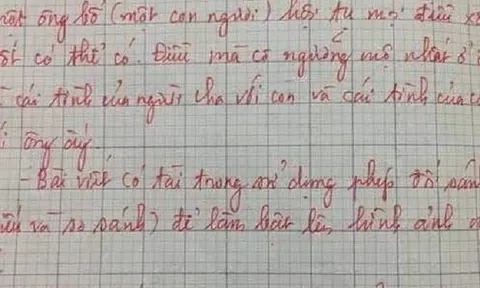 một ông bố (một con người) hội tụ mọi điều
có thể có. Điều mà cô ngưỡng mộ nhất ở
cái tình của người cha với con và cái tình của
ông ấy.
- Bài viết có tài trong sử dụng phép
và so sánh) để làm bật lên hình ảnh